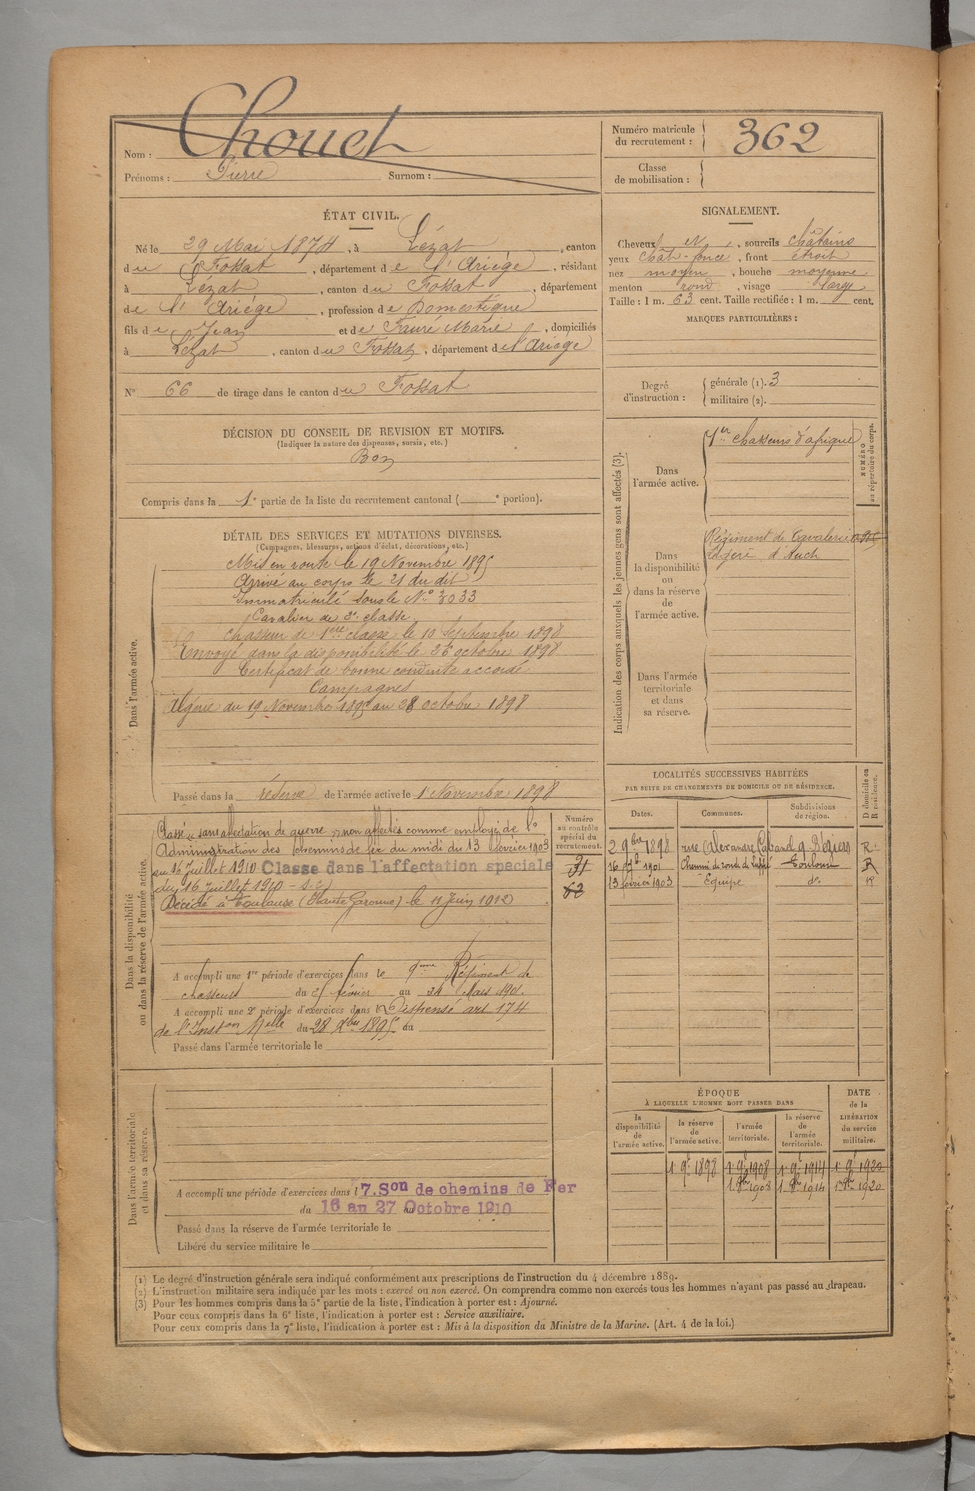 Nom : Chouet
Prénoms : Pierre Surnom :
Numéro matricule du recrutement : 362
Classe de mobilisation :
ÉTAT CIVIL.
Né le 29 Mai 1874, à Lézat, canton
du Fossat, département de l'Ariège, résidant
à Lézat, canton du Fossat, département
de l'Ariége, profession de Domestique
fils de Jean et de Fauré Marie, domiciliés
à Lézat, canton du Fossat, département de l'Ariége
N° 66 de tirage dans le canton du Fossat
SIGNALEMENT.
Cheveux , sourcils châtains
yeux chât-foncé, front étroit
nez moyen, bouche moyenne
menton rond, visage large
Taille : 1 m. 63 cent. Taille rectifiée : 1 m. cent.
MARQUES PARTICULIÈRES :
Degré d'instruction : générale (1). 3
militaire (2).
DÉCISION DU CONSEIL DE REVISION ET MOTIFS.
(Indiquer la nature des dispenses, sursis, etc.)
Bon
Compris dans la 1e partie de la liste du recrutement cantonal ( e portion).
DÉTAIL DES SERVICES ET MUTATIONS DIVERSES.
(Campagnes, blessures, actions d'éclat, décorations, etc.)
Dans l'armée active.
Mis en route le 19 Novembre 1895
Arrivé au corps le 21 du dit
Immatriculé sous le N° 3033
Cavalier de 2e classe
Chasseur de 1ère classe le 10 Septembre 1898
Envoyé dans la disponibilité le 26 octobre 1898
Certificat de bonne conduite accordé
Campagnes
Algérie du 19 Novembre 1895 au 28 octobre 1898
Passé dans la réserve de l'armée active le 1 Novembre 1898
Indication des corps auxquels les jeunes gens sont affectés (3).
NUMÉRO au répertoire du corps.
Dans l'armée active.
1er Chasseurs d'afrique
Dans la disponibilité ou dans la réserve de l'armée active.
Régiment de Cavalerie
légère d'Auch
Dans l'armée territoriale et dans sa réserve.
Dans la disponibilité ou dans la réserve de l'armée active.
Classé "sans affectation de guerre" non affectés comme employé de la
Administration des chemins de fer du midi du 13 février 1903
au 16 Juillet 1910 Classe dans l'affectation speciale
du 16 Juillet 1910
Décédé à Toulouse (Haute Garonne) le 11 Juin 1912
Numéro au contrôle spécial du recrutement.
A accompli une 1re période d'exercices dans le 9ème Régiment de
chasseurs du 25 février au 24 Mars 1901
A accompli une 2e période d'exercices dans l Dispensé art 174
de l'Inston Melle du 28 Xbre 1895 au
Passé dans l'armée territoriale le
LOCALITÉS SUCCESSIVES HABITÉES
PAR SUITE DE CHANGEMENTS DE DOMICILE OU DE RÉSIDENCE.
Dates. Communes. Subdivisions de région. D domicile ou R résidence.
2 9bre 1898 rue Alexandre Cabanel 9 Béziers R
1901 Toulouse R
13 février 1903 Equipe do R
Dans l'armée territoriale et dans sa réserve.
A accompli une période d'exercices dans l 7. Son de chemins de Fer
du 16 au 27 Octobre 1910
Passé dans la réserve de l'armée territoriale le
Libéré du service militaire le
ÉPOQUE
À LAQUELLE L'HOMME DOIT PASSER DANS
la disponibilité de l'armée active. la réserve de l'armée active. l'armée territoriale. la réserve de l'armée territoriale.
DATE de la LIBÉRATION du service militaire.
1 9e 1898 1 9e 1908 1 9e 1914 1 9e 1920
(1) Le degré d'instruction générale sera indiqué conformément aux prescriptions de l'instruction du 4 décembre 1889.
(2) L'instruction militaire sera indiquée par les mots : exercé ou non exercé. On comprendra comme non exercés tous les hommes n'ayant pas passé au drapeau.
(3) Pour les hommes compris dans la 5e partie de la liste, l'indication à porter est : Ajourné.
Pour ceux compris dans la 6e liste, l'indication à porter est : Service auxiliaire.
Pour ceux compris dans la 7e liste, l'indication à porter est : Mis à la disposition du Ministre de la Marine. (Art. 4 de la loi.)